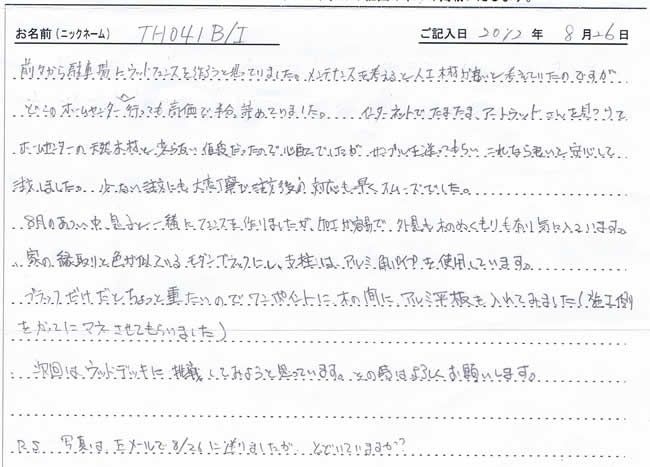 お名前(ニックネーム) TH041B/I ご記入日 2012年 8月26日
前々から駐車場にウッドフェンスを作ろうと思っていました。メンテナンスを考えると人工木材が良いと考えていたのですが
どこのホームセンターへ行っても高価で半ば諦めていました。...インターネットでたまたまアートウッドさんを見つけて
ホームセンターの天然木材と変らない値段だったので心配でしたが、サンプルを送ってもらい、これなら良いと安心して
注文しました。少ない注文にも大変丁寧で注文後の対応も早くスムーズでした。
8月のあつい中、息子と一緒にフェンスを作りましたが、加工が容易で、外見も木のぬくもりも有り気に入っています。
家の縁取りと色が似ているモダンブラックにし、支柱は、アルミ角パイプを使用しています。
ブラックだけだとちょっと重たいのでワンポイントに木の間にアルミ平板を入れてみました(施工例
をかってにマネさせてもらいました)
次回は、ウッドデッキに挑戦してみようと思っています。その時はよろしくお願いします。
P.S. 写真は、Eメールで8/26に送りましたが、とどいていますか?